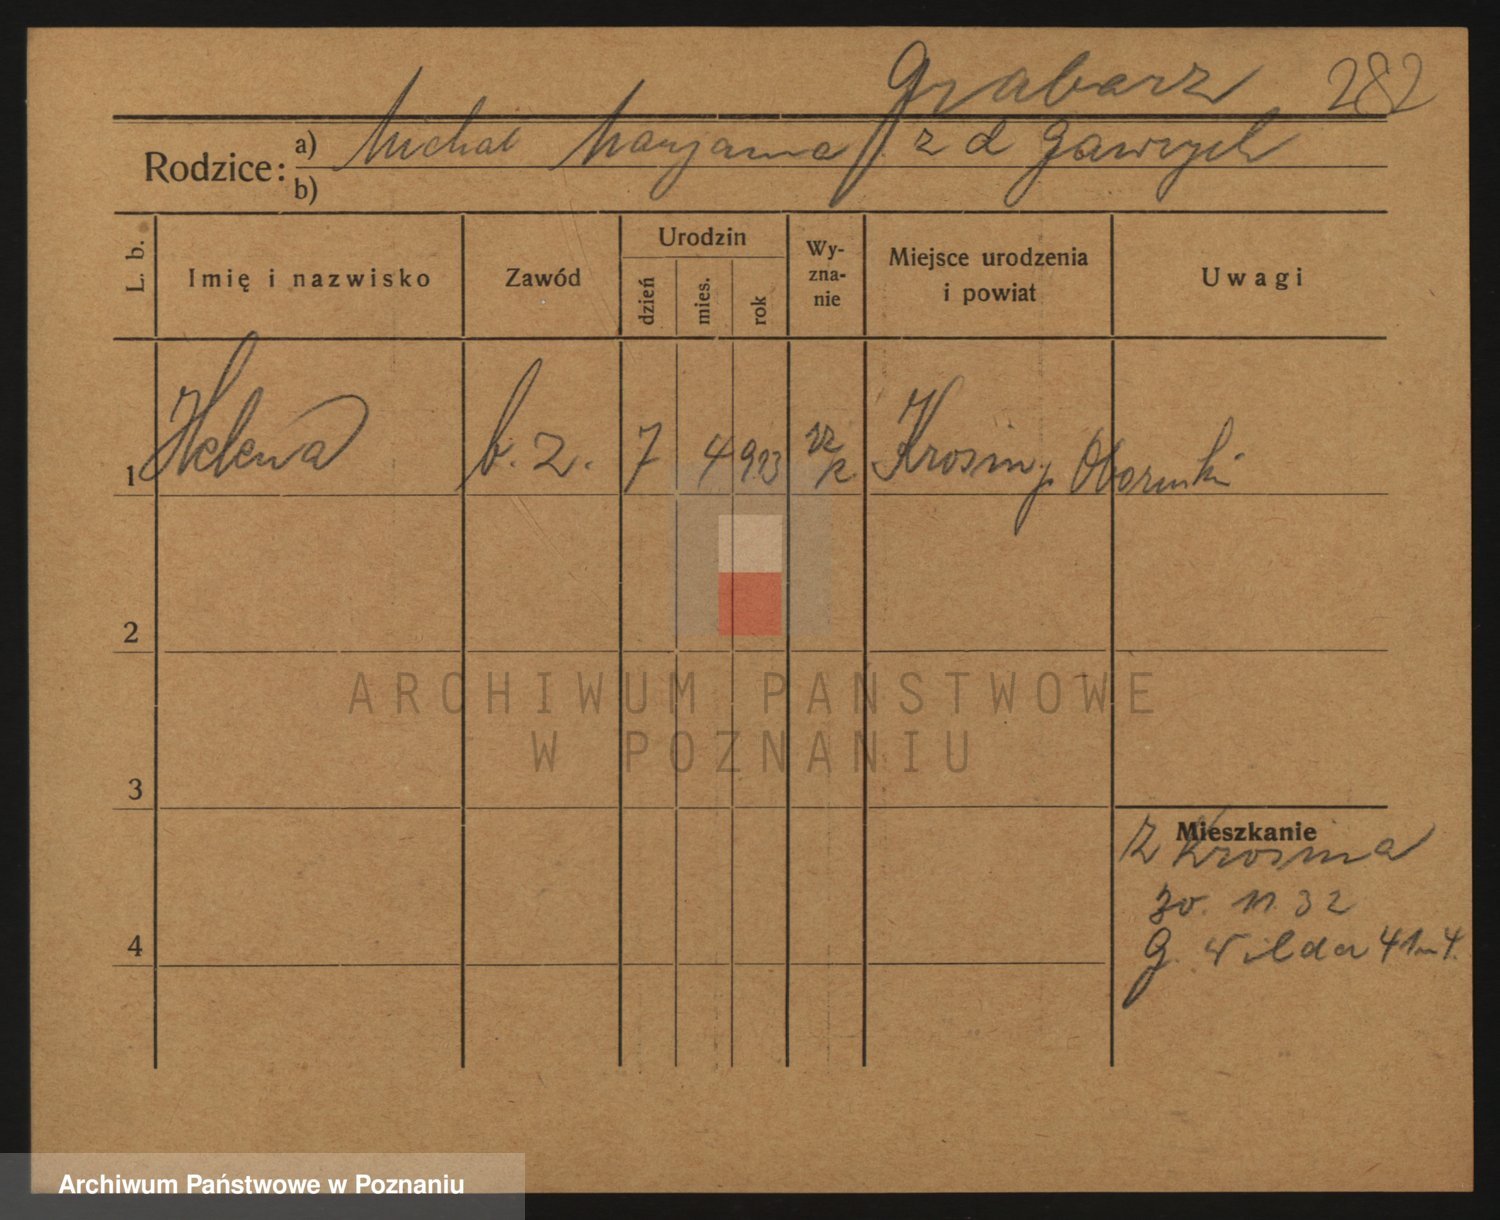 Grabarz 282
Rodzice: a) Michał Marjanna z d Gawrych
b)
L. b.
Imię i nazwisko
Zawód
Urodzin
dzień
mies.
rok
Wy-
zna-
nie
Miejsce urodzenia
i powiat
Uwagi
1 Helena b. z. 7 4 913 rz k. Krosin p Obornki
2
3
4
Mieszkanie
z Krosina
30. 11. 32
G. Wilda 41 m 4.
ARCHIWUM PAŃSTWOWE
W POZNANIU
Archiwum Państwowe w Poznaniu